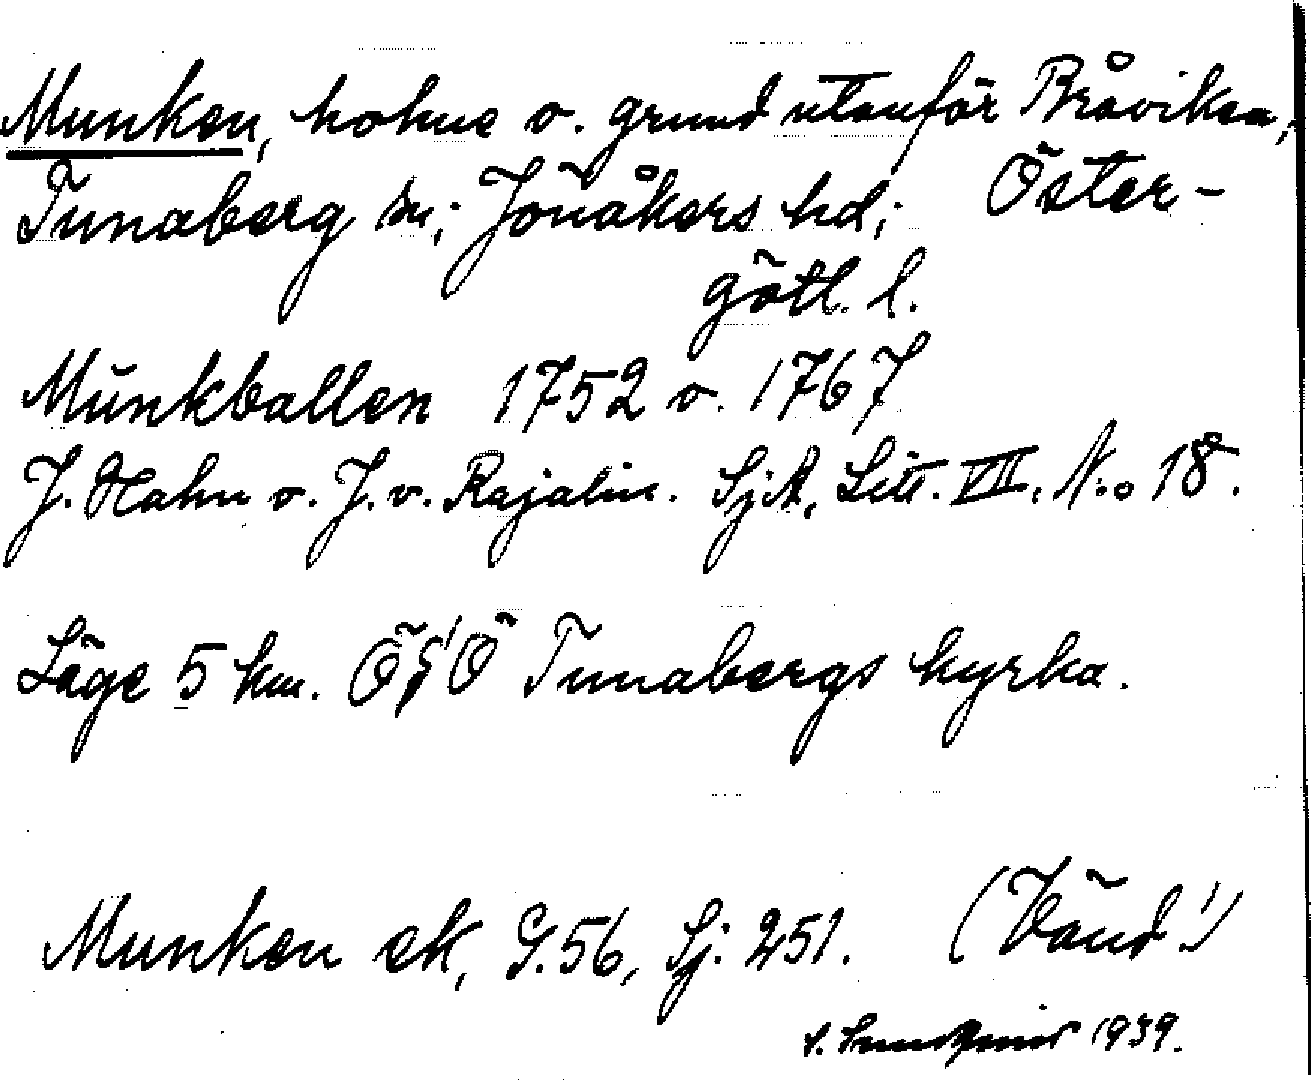 Munken, holme o. grund utanför Bråviken,
Tunaberg sn; Jönåkers hd; Öster-
götl. l.
Munkballen 1752 o. 1767
J. Hahn o. J. v. Rajalin. SjA, Litt. VII. N:o 18.
Läge 5 km. Ö S' Ö Tunabergs kyrka.
Munken ek, G. 56, Sj. 251. (Vänd!)
1939.